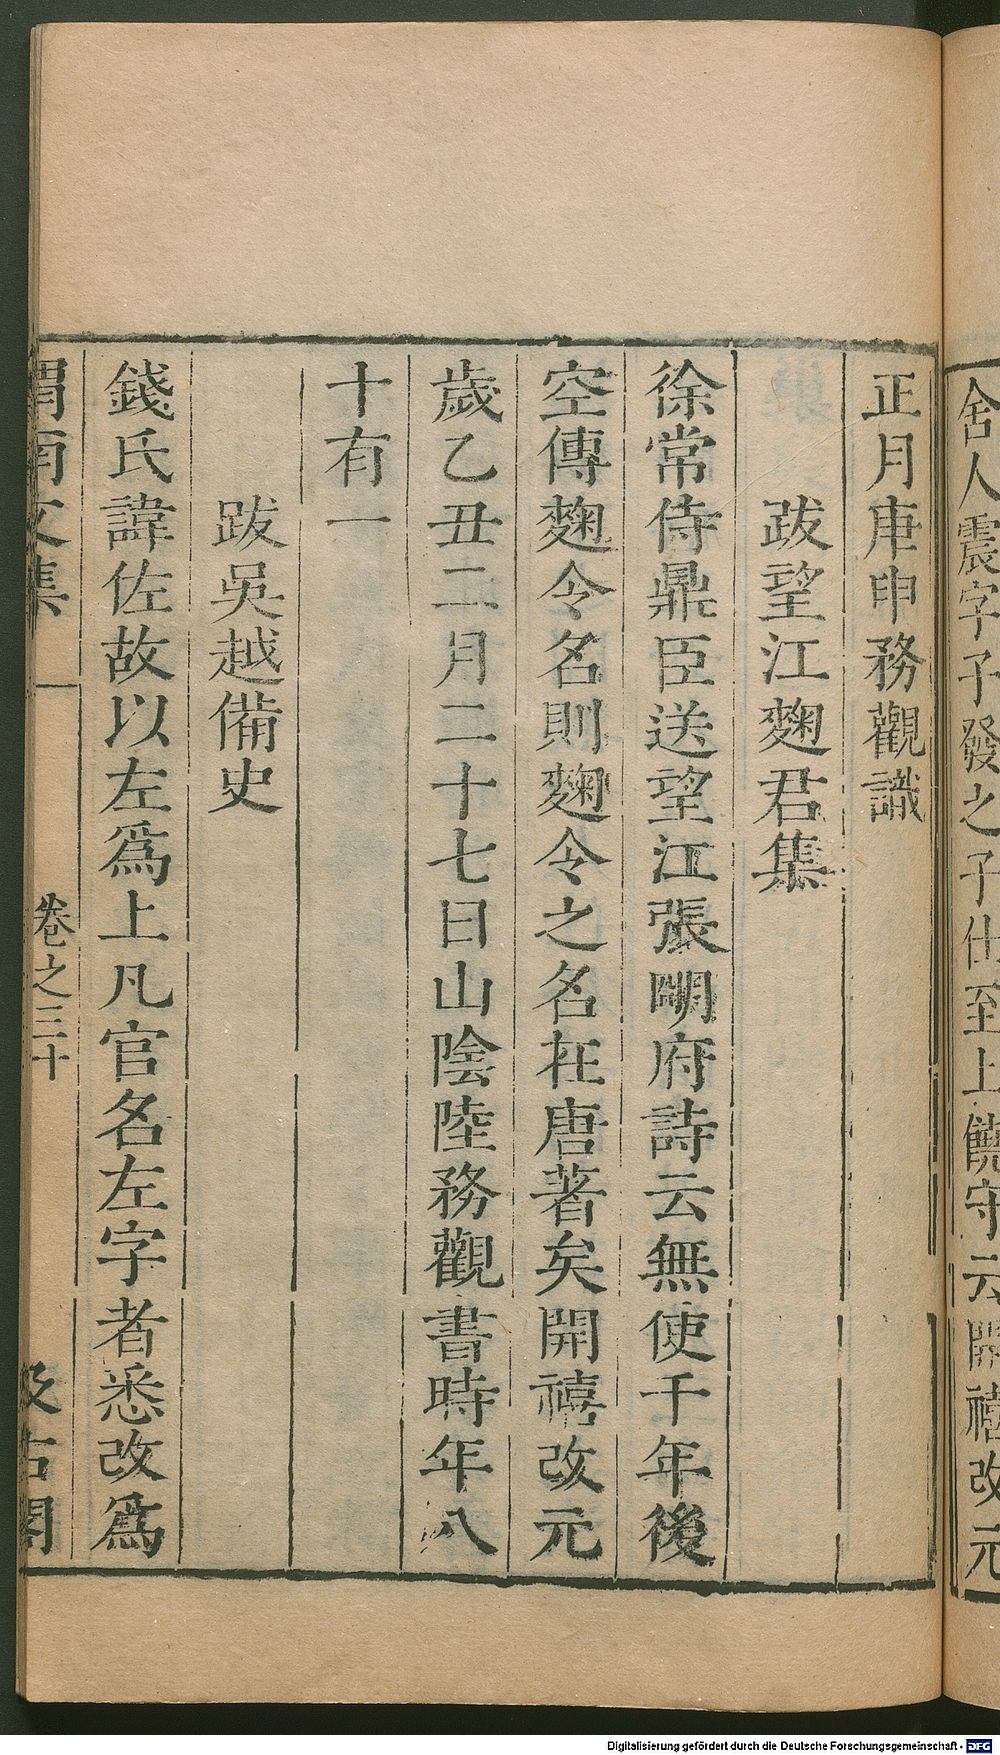 舍人震字子發之子仕至上饒守云開禧改元
正月庚申務觀識
跋望江麴君集
徐常侍鼎臣送望江張明府詩云無使千年後
空傳麴令名則麴令之名在唐著矣開禧改元
歲乙丑二月二十七日山陰陸務觀書時年八
十有一
跋吳越備史
錢氏諱佐故以左爲上凡官名左字者悉改爲
渭南文集
卷之三十
汲古閣
Digitalisierung gefördert durch die Deutsche Forschungsgemeinschaft - DFG